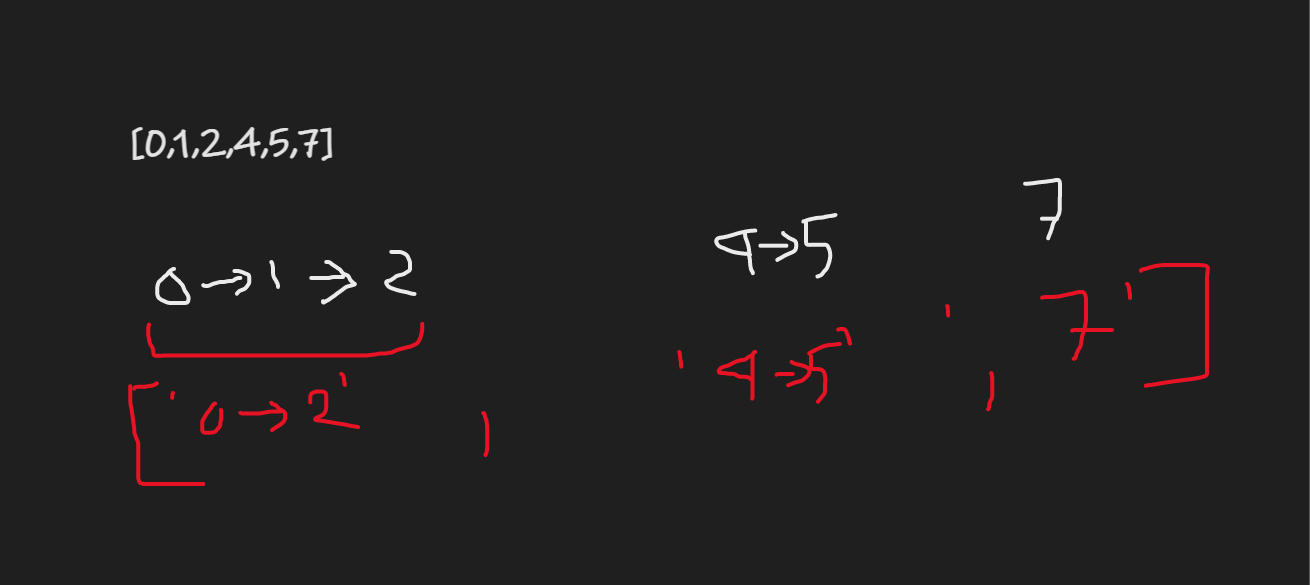 [0,1,2,4,5,7]
0→1→2 4→5 7
['0→2', '4→5', '7']